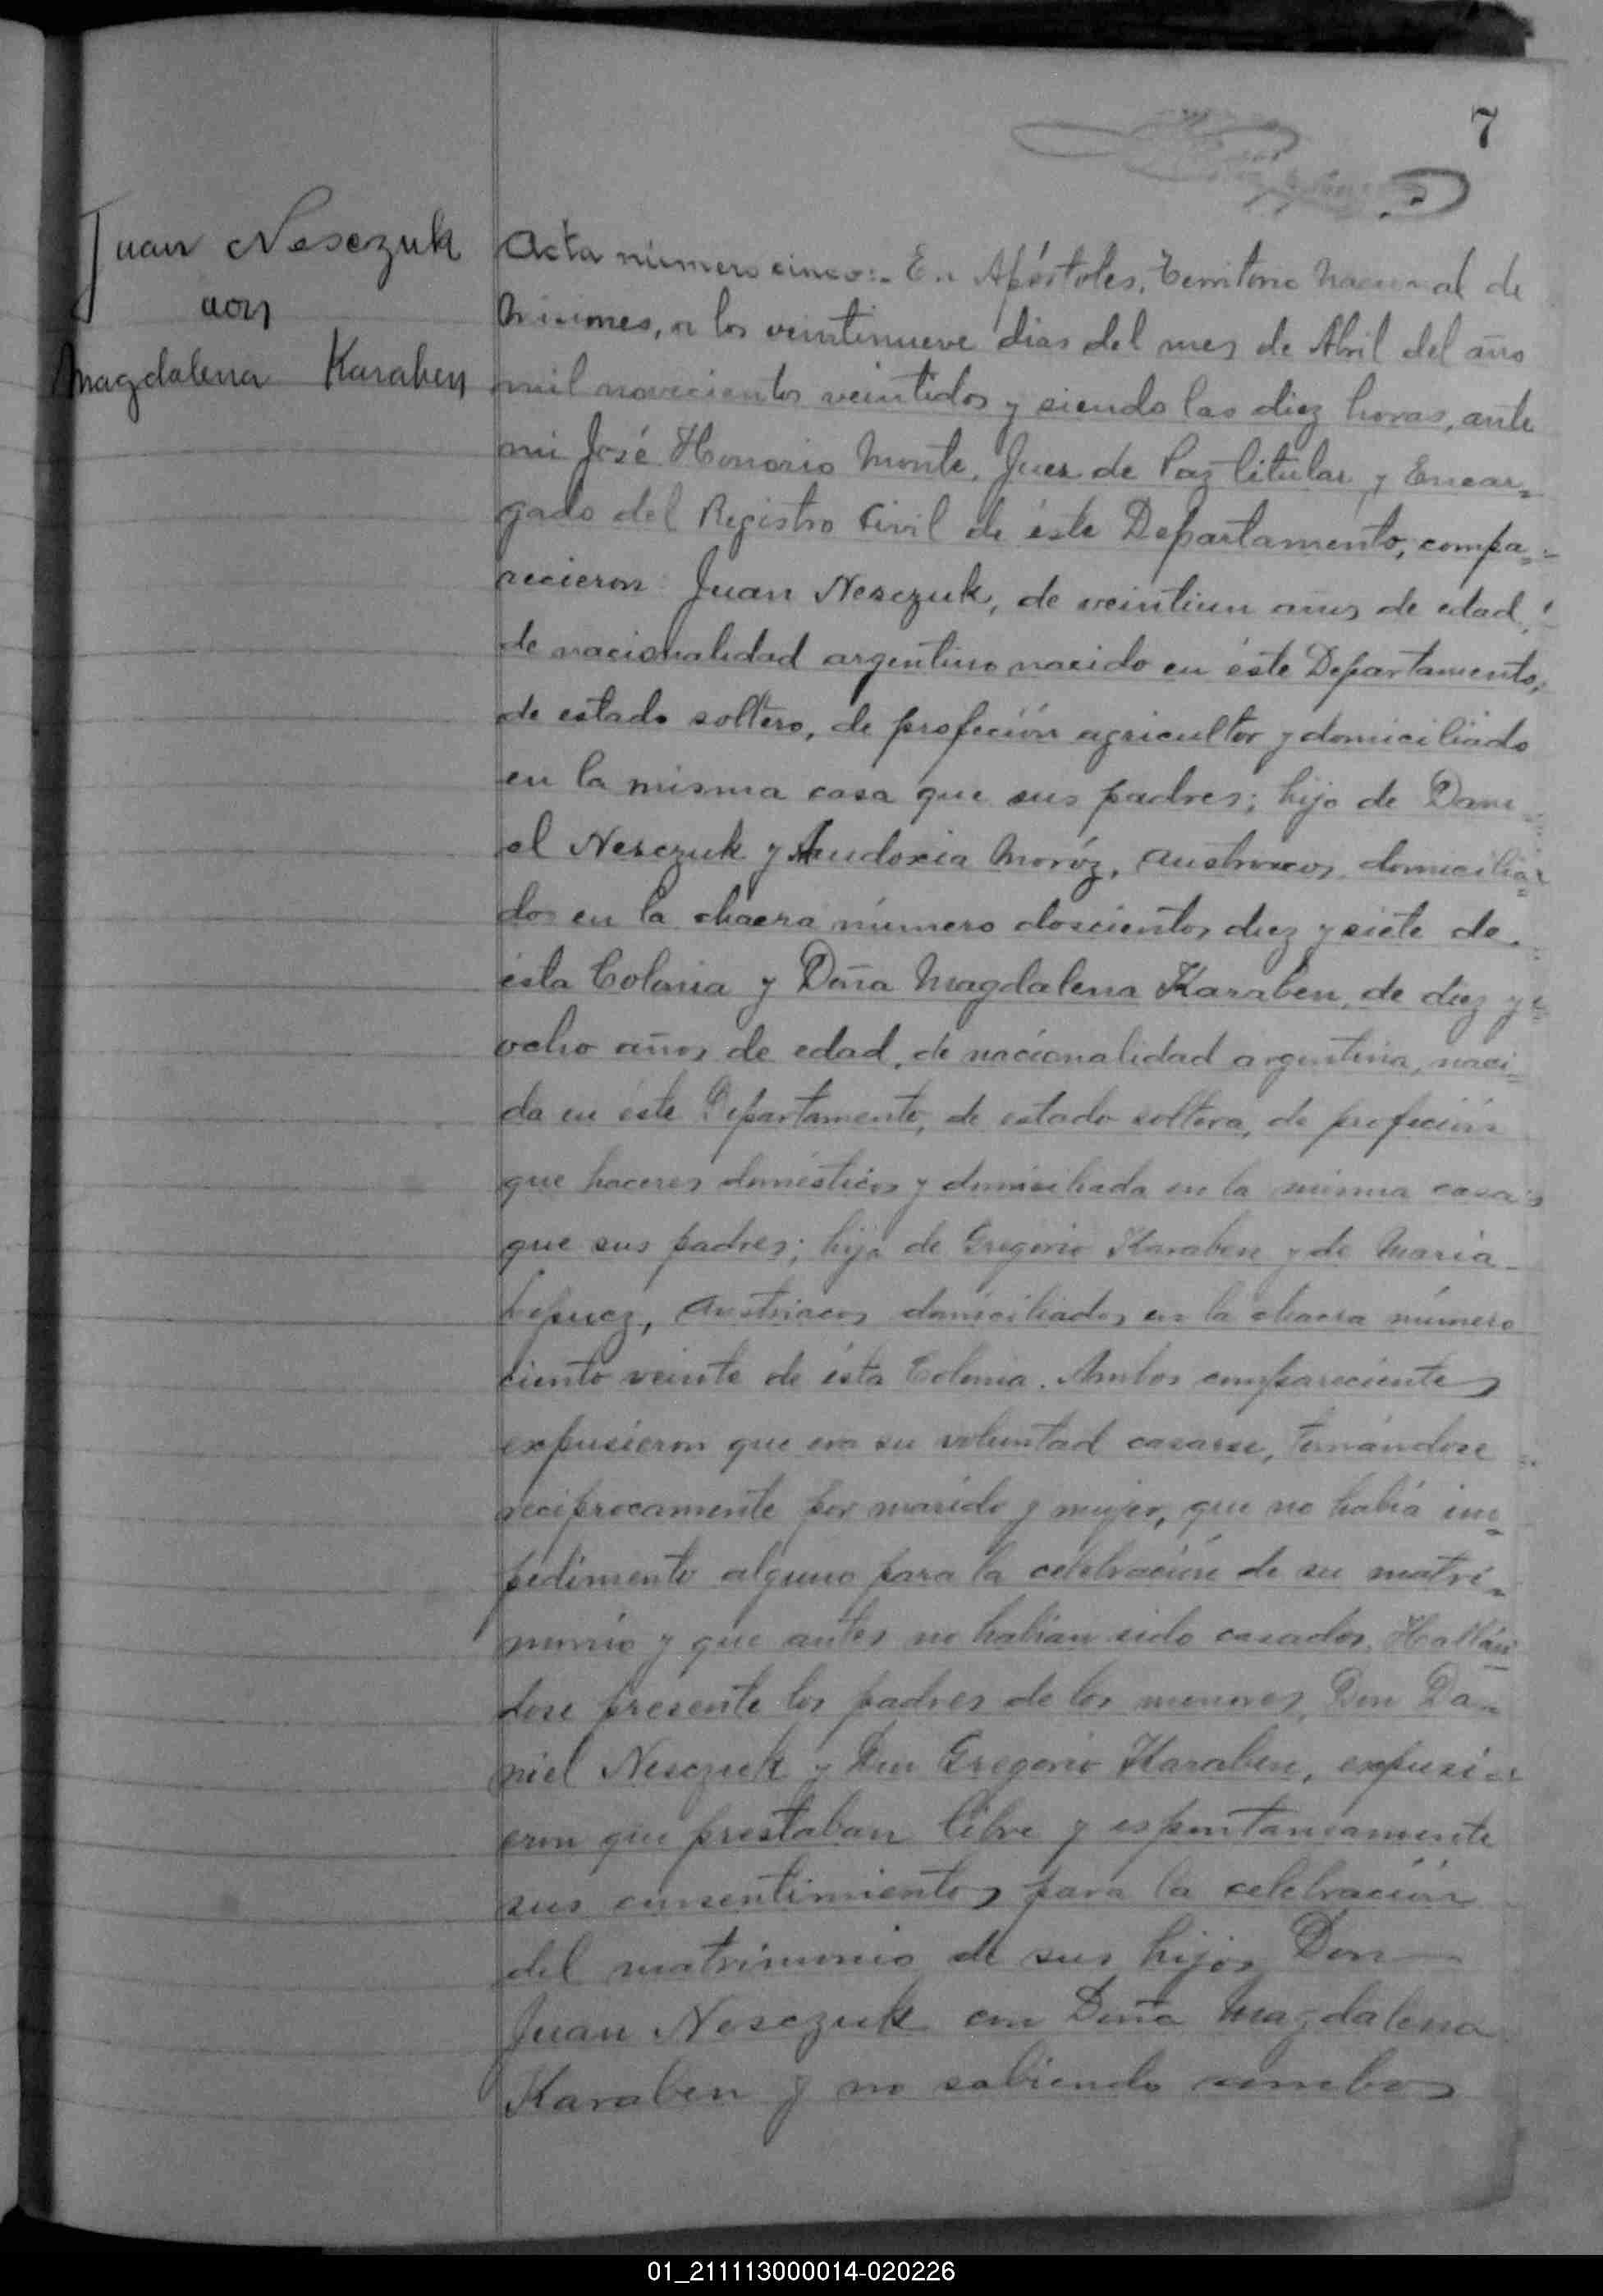 7
Juan Nesczuk
con
Magdalena Karaben
Acta número cinco:- En Apóstoles, Territorio Nacional de
Misiones, a los veintinueve dias del mes de Abril del año
mil novecientos veintidos y siendo las diez horas, ante
mi José Honorio Monte, Juez de Paz titular y Encar=
gado del Registro Civil de éste Departamento, compa=
recieron: Juan Nesczuk, de veintiun años de edad,
de nacionalidad argentino nacido en éste Departamento,
de estado soltero, de profeción agricultor y domiciliado
en la misma casa que sus padres; hijo de Dani
el Nesczuk y Audoxia Moróz, austriacos, domicilia=
dos en la chacra número doscientos diez y siete de
ésta Colonia y Doña Magdalena Karaben, de diez y
ocho años de edad, de nacionalidad argentina, naci=
da en éste Departamento, de estado soltera, de profeción
que haceres domésticos y domiciliada en la misma casa
que sus padres; hija de Gregorio Karaben y de Maria
austriacos domiciliados en la chacra número
ciento veinte de ésta Colonia. Ambos comparecientes
expusieron que era su voluntad casarse, tomándose
reciprocamente por marido y mujer, que no había im=
pedimento alguno para la celebración de su matri=
monio y que antes no habían sido casados. Hallán
dose presente los padres de los menores, Don Da=
niel Nesczuk y Don Gregorio Karaben, expusi=
eron que prestaban libre y espontaneamente
sus consentimientos para la celebración
del matrimonio de sus hijos Don
Juan Nesczuk con Doña Magdalena
Karaben y no sabiendo ambos
01_211113000014-020226